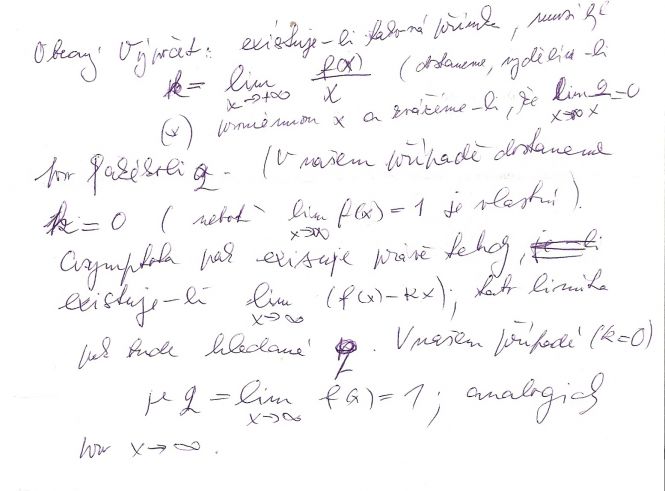 Obecný výpočet: existuje-li taková přímka, musí být
k = lim x→+∞ f(x)/x (dostaneme, vydělíme-li
(*) proměnnou x a uvážíme-li, že lim x→∞ q/x = 0
pro jakékoli q. (V našem případě dostaneme
k = 0 (neboť lim x→∞ f(x) = 1 je vlastní).
Asymptota pak existuje právě tehdy,
existuje-li lim x→∞ (f(x) - kx); tato limita
pak bude hledané q. V našem případě (k=0)
je q = lim x→∞ f(x) = 1; analogicky
pro x→∞.